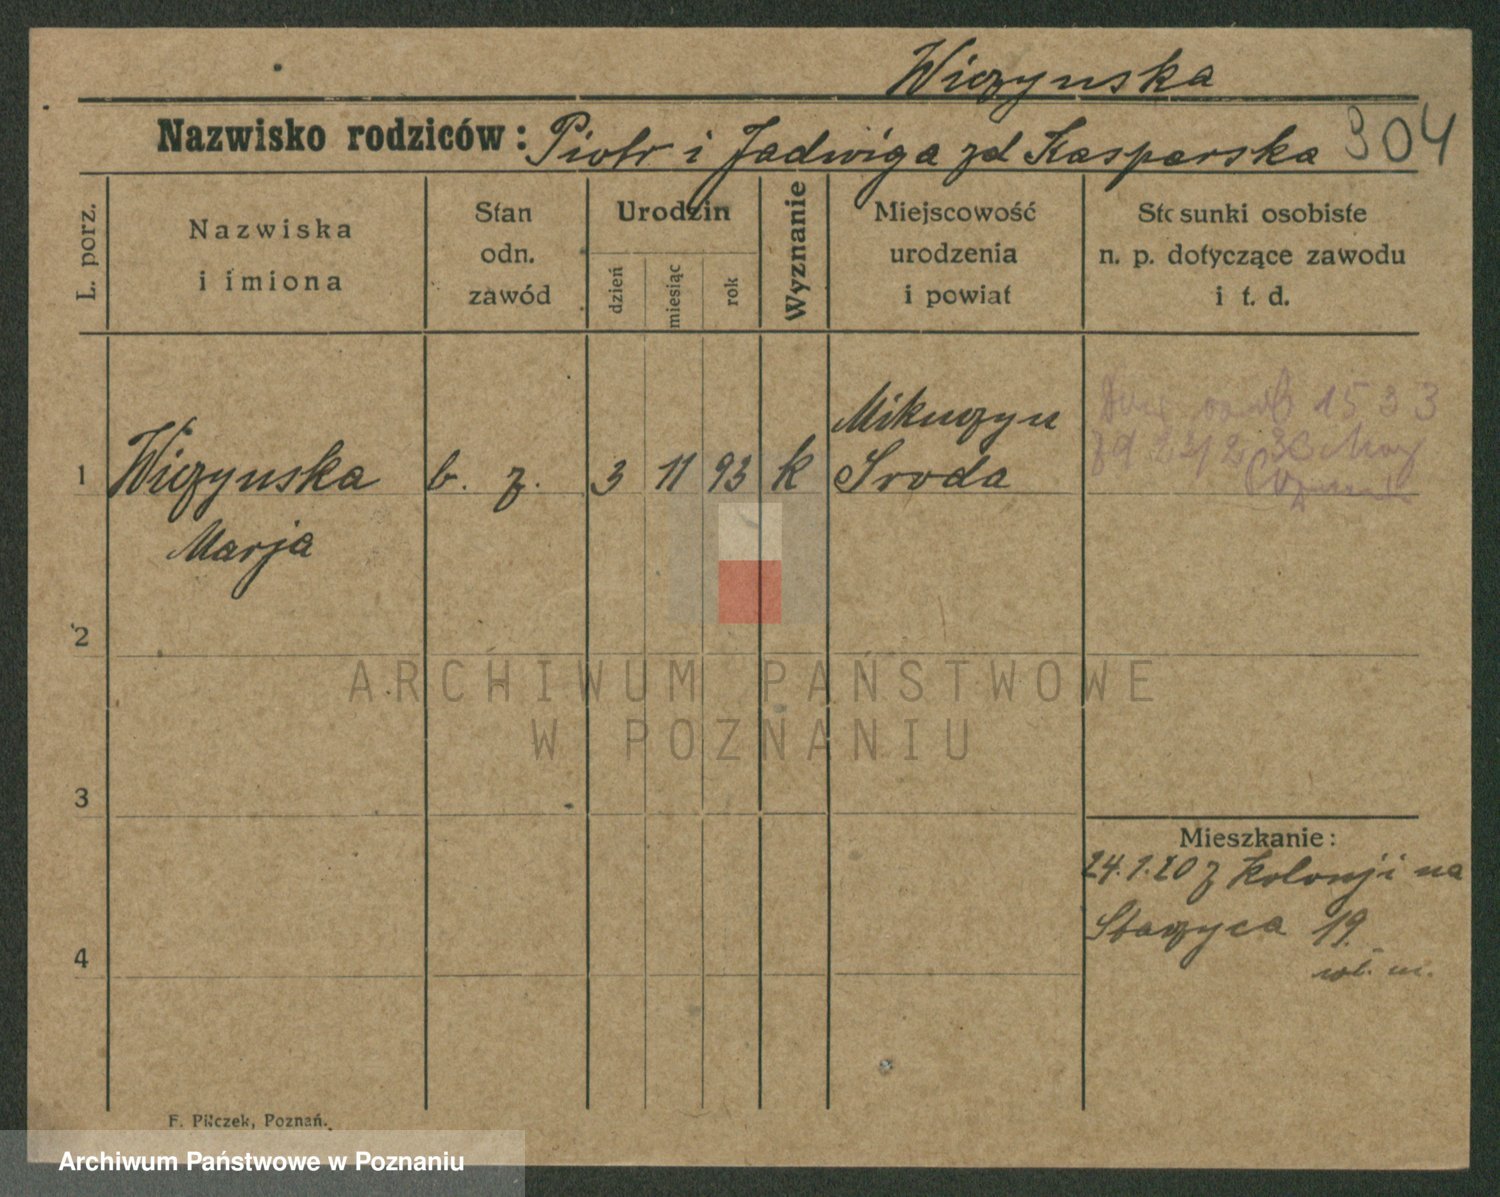 Wiczynska
Nazwisko rodziców: Piotr i Jadwiga zd Kasparska 304
L. porz.
Nazwiska
i imiona
Stan
odn.
zawód
Urodzin
dzień
miesiąc
rok
Wyznanie
Miejscowość
urodzenia
i powiat
Stosunki osobiste
n. p. dotyczące zawodu
i t. d.
1 Wiczynska b. z. 3 11 93 k Mikuczyn
Sroda
Marja
1533
2
ARCHIWUM PAŃSTWOWE
W POZNANIU
3
Mieszkanie:
24.1.20 z Kolonji na
Staczyca 19.
4
F. Pilczek, Poznań.
Archiwum Państwowe w Poznaniu